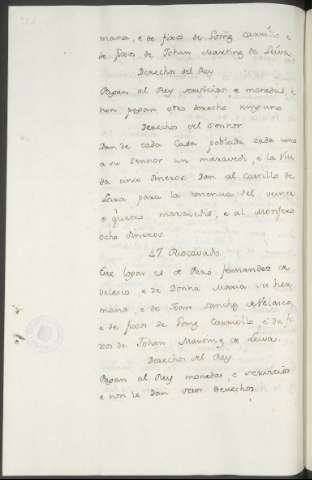 mana, e de fixos de Gonz Carrillo e
de fixos de Johan Martinz de Leiva.
Derechos del Rey
Pagan al Rey servicios e monedas, e
non pagan otro derecho ninguno
Derechos del Sennor
Dan de cada Casa poblada cada uno
a su Sennor un maravedi, e la Viu
da cinco dineros Dan al Castillo de
Lara para la tenencia del veinte
maravedis, e al
ocho dineros.
47. Riocavado.
Este logar es de Pero Fernandez de
Velasco, e de Donna Maria su her
mana, e de Joan Sanchez de Velasco,
e de fixos de Gonz Carrillo, e de fi
xos de Johan Martinz de Leiva.
Derechos del Rey.
Pagan al Rey monedas, e servicios
e non le dan otros derechos.